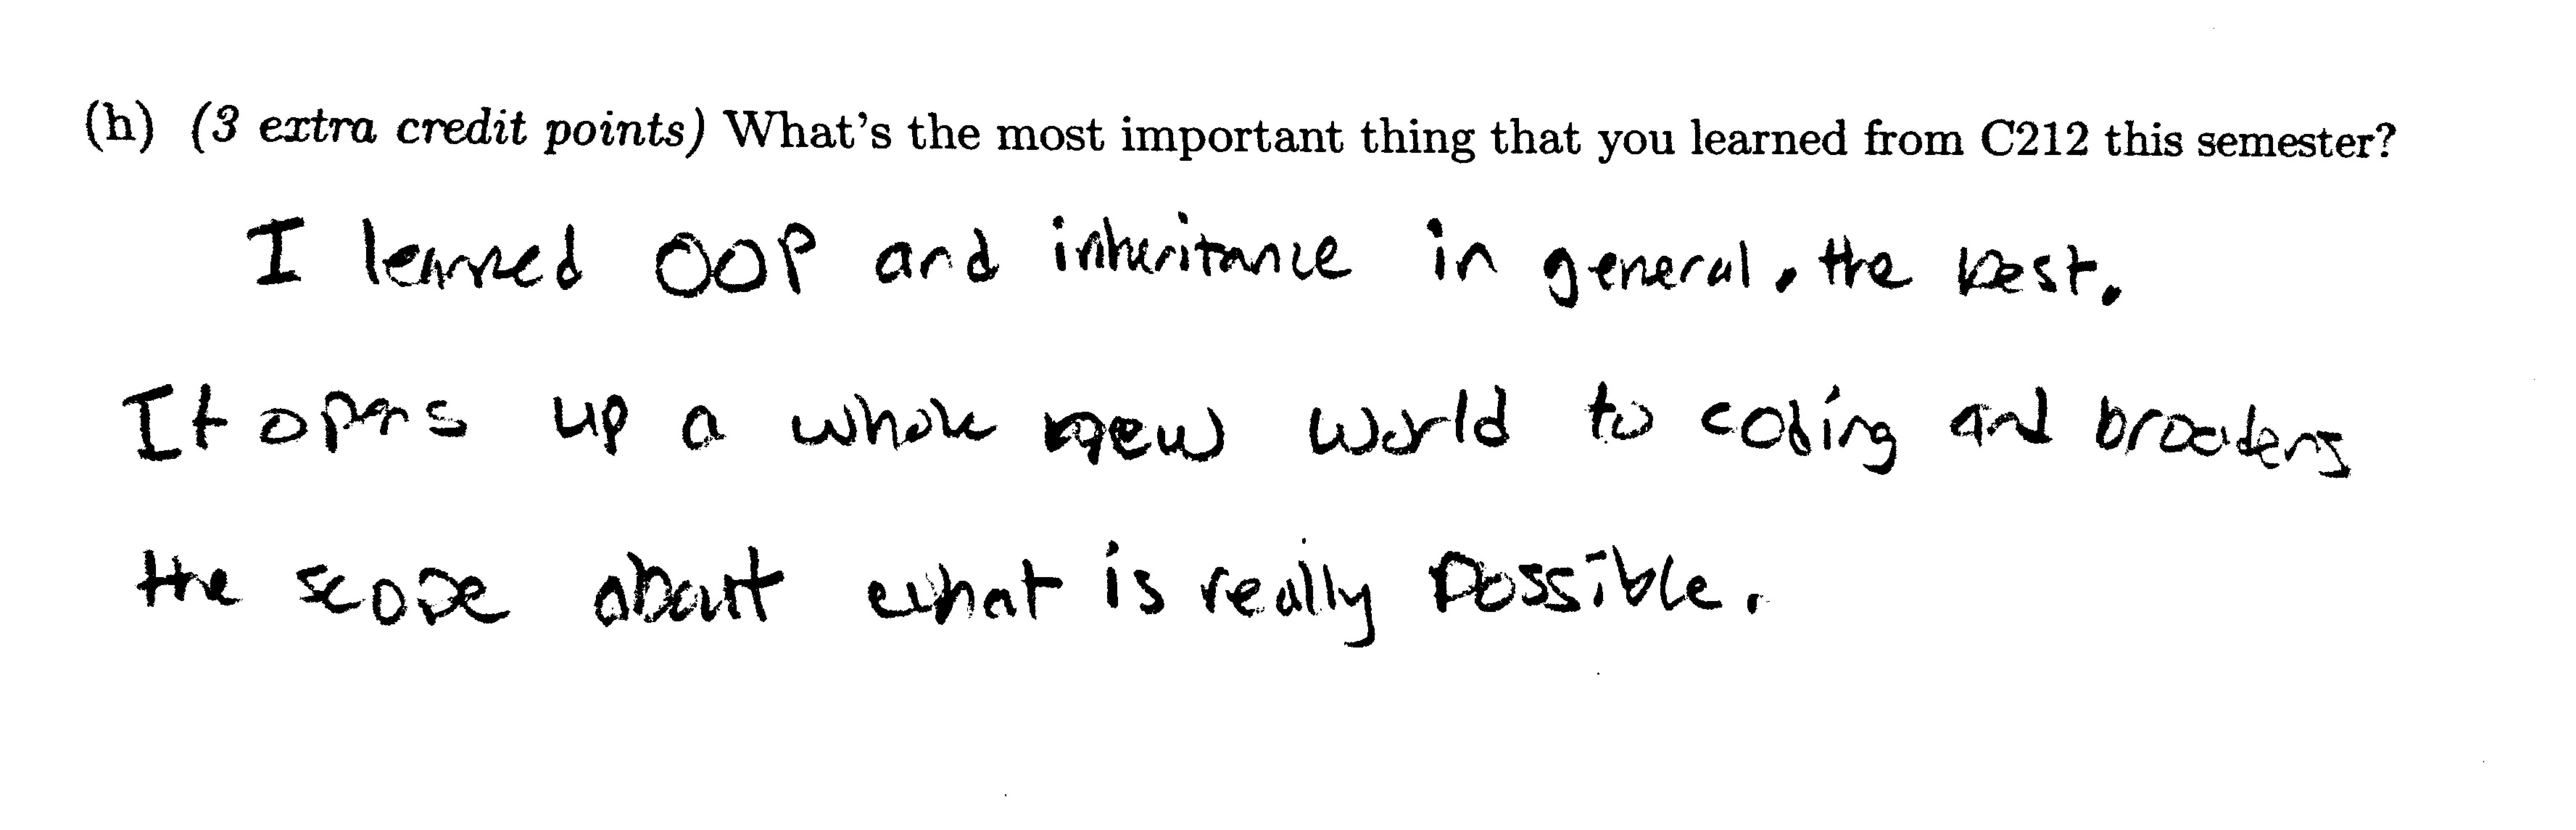 (h) (3 extra credit points) What's the most important thing that you learned from C212 this semester?
I learned OOP and inheritance in general, the best.
It opens up a whole new world to coding and broadens
the scope about what is really possible.